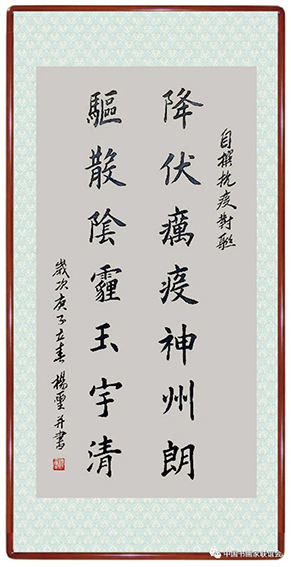 自撰抗疫對聯
降伏癘疫神州朗
驅散陰霾玉宇清
歲次庚子立春 楊 并書
中国书画家联谊会